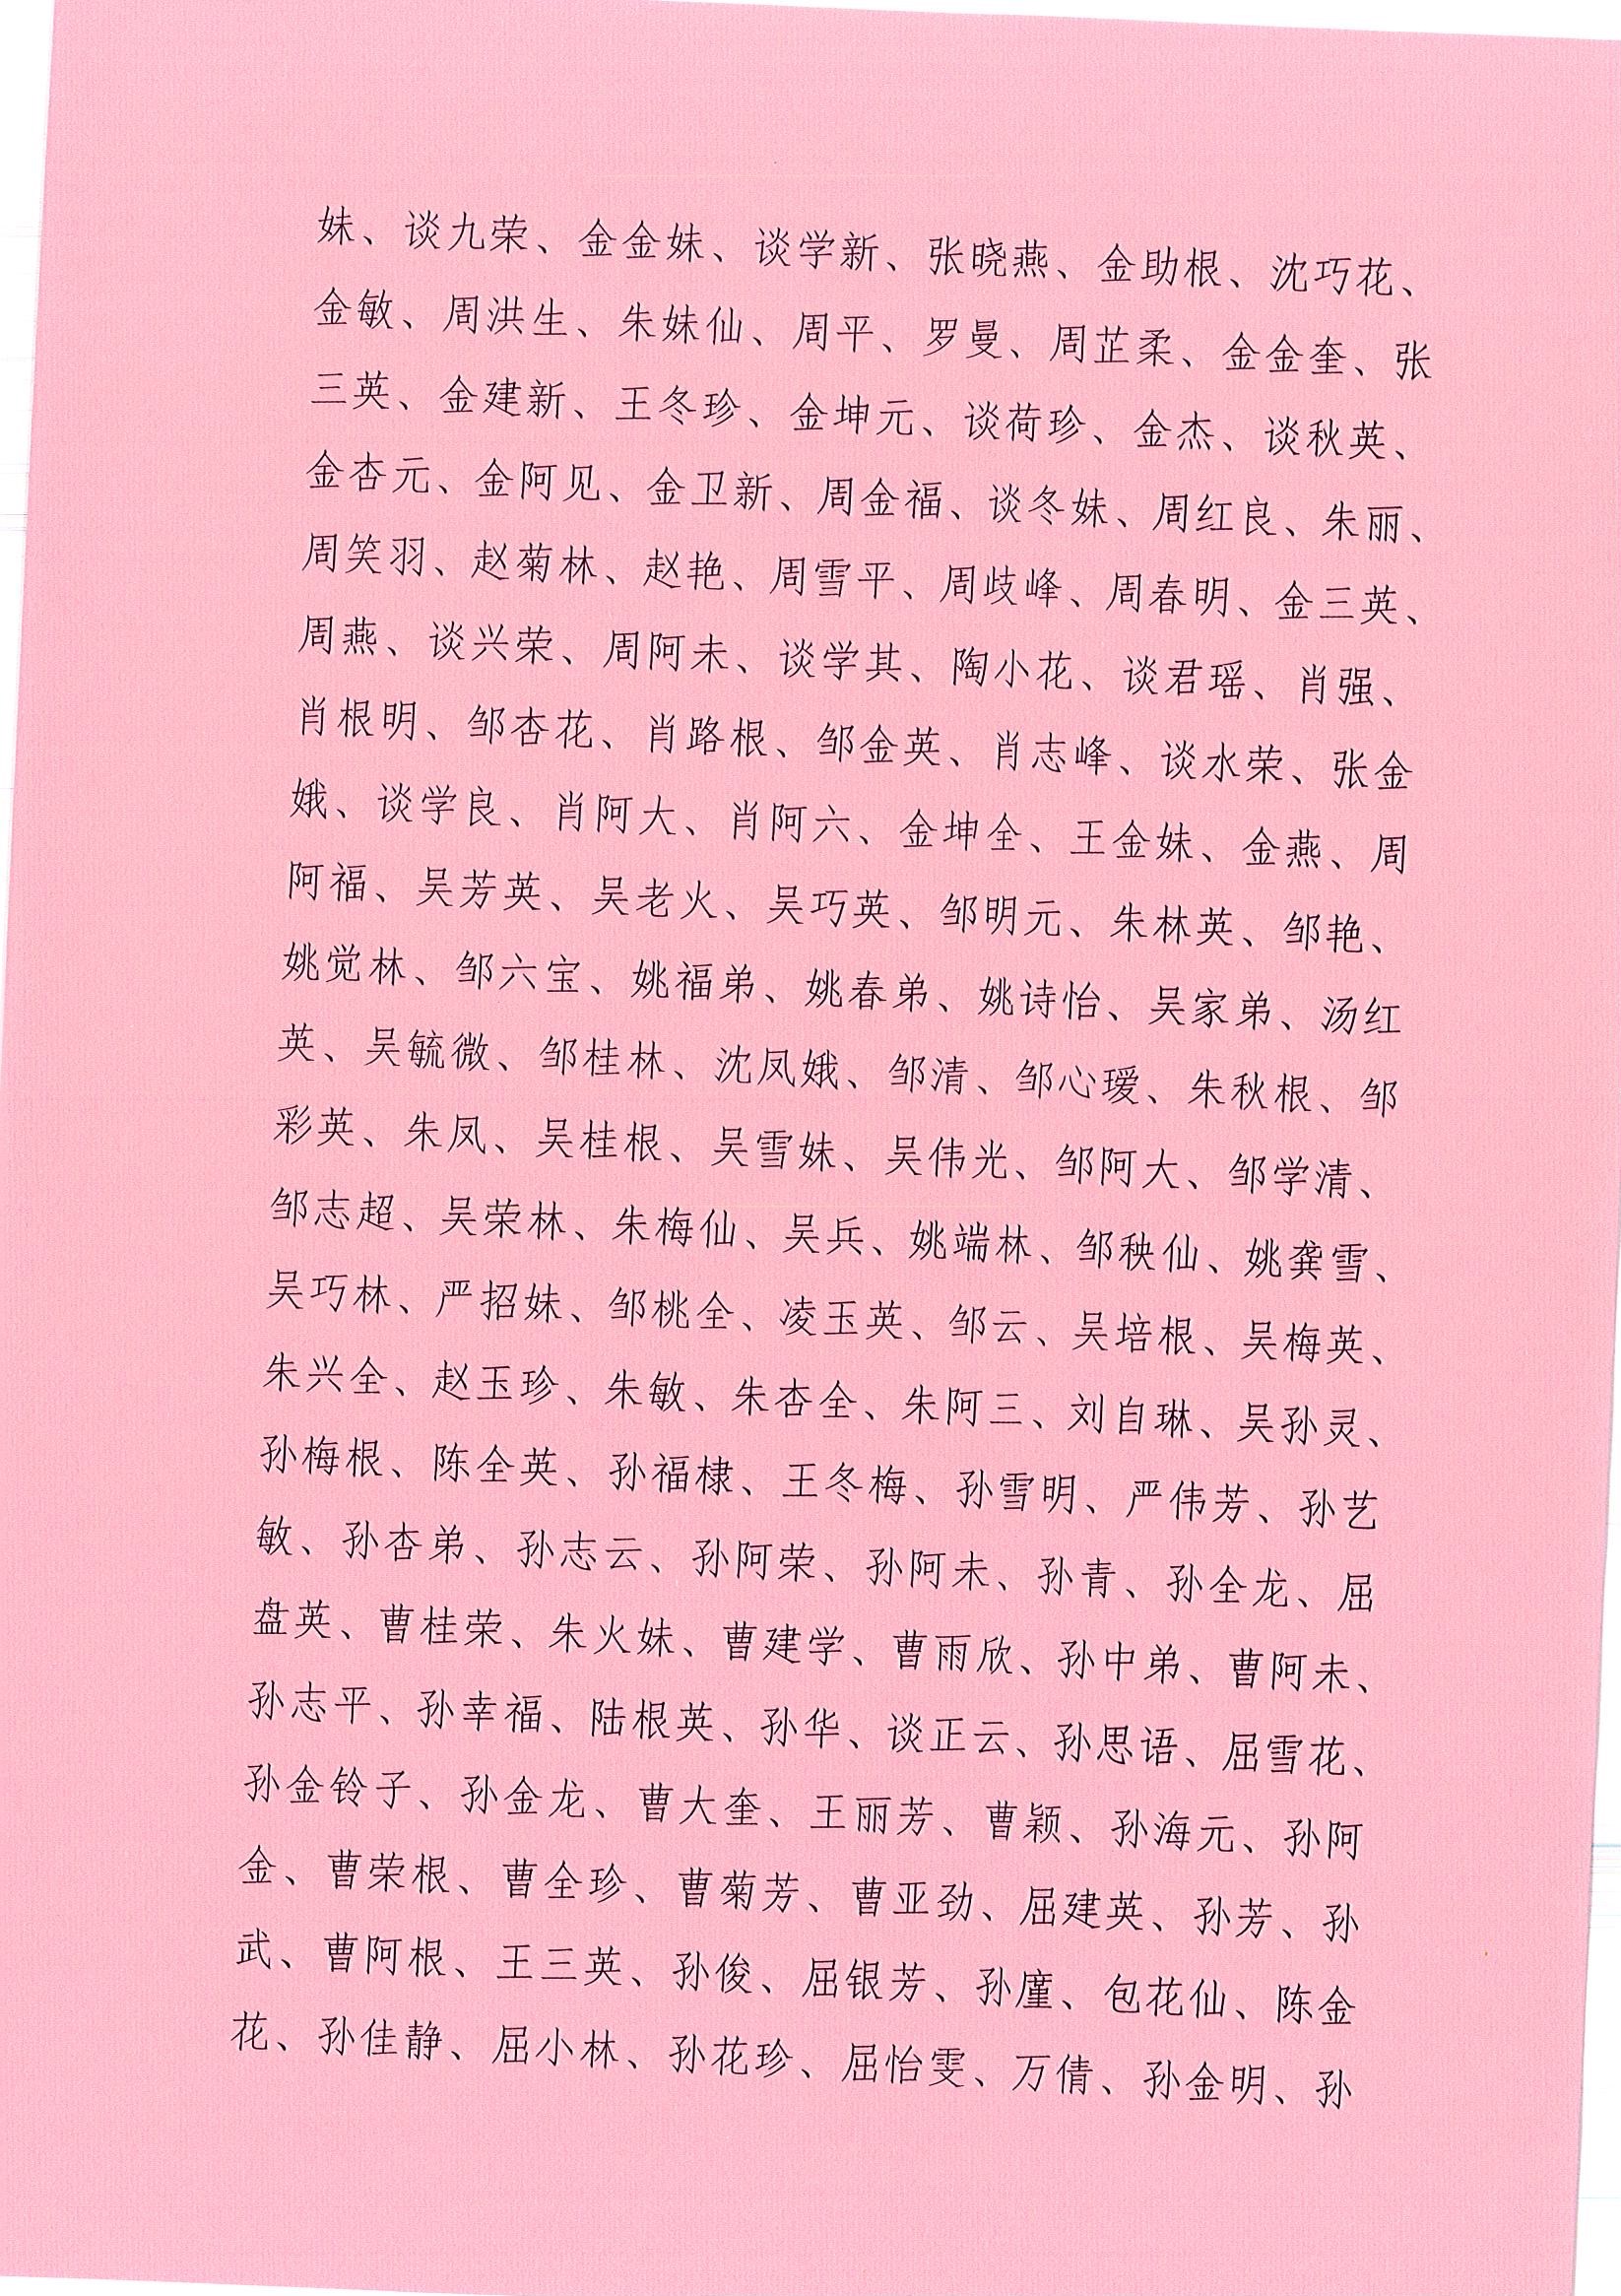 妹、谈九荣、金金妹、谈学新、张晓燕、金助根、沈巧花、
金敏、周洪生、朱妹仙、周平、罗曼、周芷柔、金金奎、张
三英、金建新、王冬珍、金坤元、谈荷珍、金杰、谈秋英、
金杏元、金阿见、金卫新、周金福、谈冬妹、周红良、朱丽、
周笑羽、赵菊林、赵艳、周雪平、周歧峰、周春明、金三英、
周燕、谈兴荣、周阿未、谈学其、陶小花、谈君瑶、肖强、
肖根明、邹杏花、肖路根、邹金英、肖志峰、谈水荣、张金
娥、谈学良、肖阿大、肖阿六、金坤全、王金妹、金燕、周
阿福、吴芳英、吴老火、吴巧英、邹明元、朱林英、邹艳、
姚觉林、邹六宝、姚福弟、姚春弟、姚诗怡、吴家弟、汤红
英、吴毓微、邹桂林、沈凤娥、邹清、邹心瑷、朱秋根、邹
彩英、朱凤、吴桂根、吴雪妹、吴伟光、邹阿大、邹学清、
邹志超、吴荣林、朱梅仙、吴兵、姚端林、邹秧仙、姚龚雪、
吴巧林、严招妹、邹桃全、凌玉英、邹云、吴培根、吴梅英、
朱兴全、赵玉珍、朱敏、朱杏全、朱阿三、刘自琳、吴孙灵、
孙梅根、陈全英、孙福棣、王冬梅、孙雪明、严伟芳、孙艺
敏、孙杏弟、孙志云、孙阿荣、孙阿未、孙青、孙全龙、屈
盘英、曹桂荣、朱火妹、曹建学、曹雨欣、孙中弟、曹阿未、
孙志平、孙幸福、陆根英、孙华、谈正云、孙思语、屈雪花、
孙金铃子、孙金龙、曹大奎、王丽芳、曹颖、孙海元、孙阿
金、曹荣根、曹全珍、曹菊芳、曹亚劲、屈建英、孙芳、孙
武、曹阿根、王三英、孙俊、屈银芳、孙廑、包花仙、陈金
花、孙佳静、屈小林、孙花珍、屈怡雯、万倩、孙金明、孙